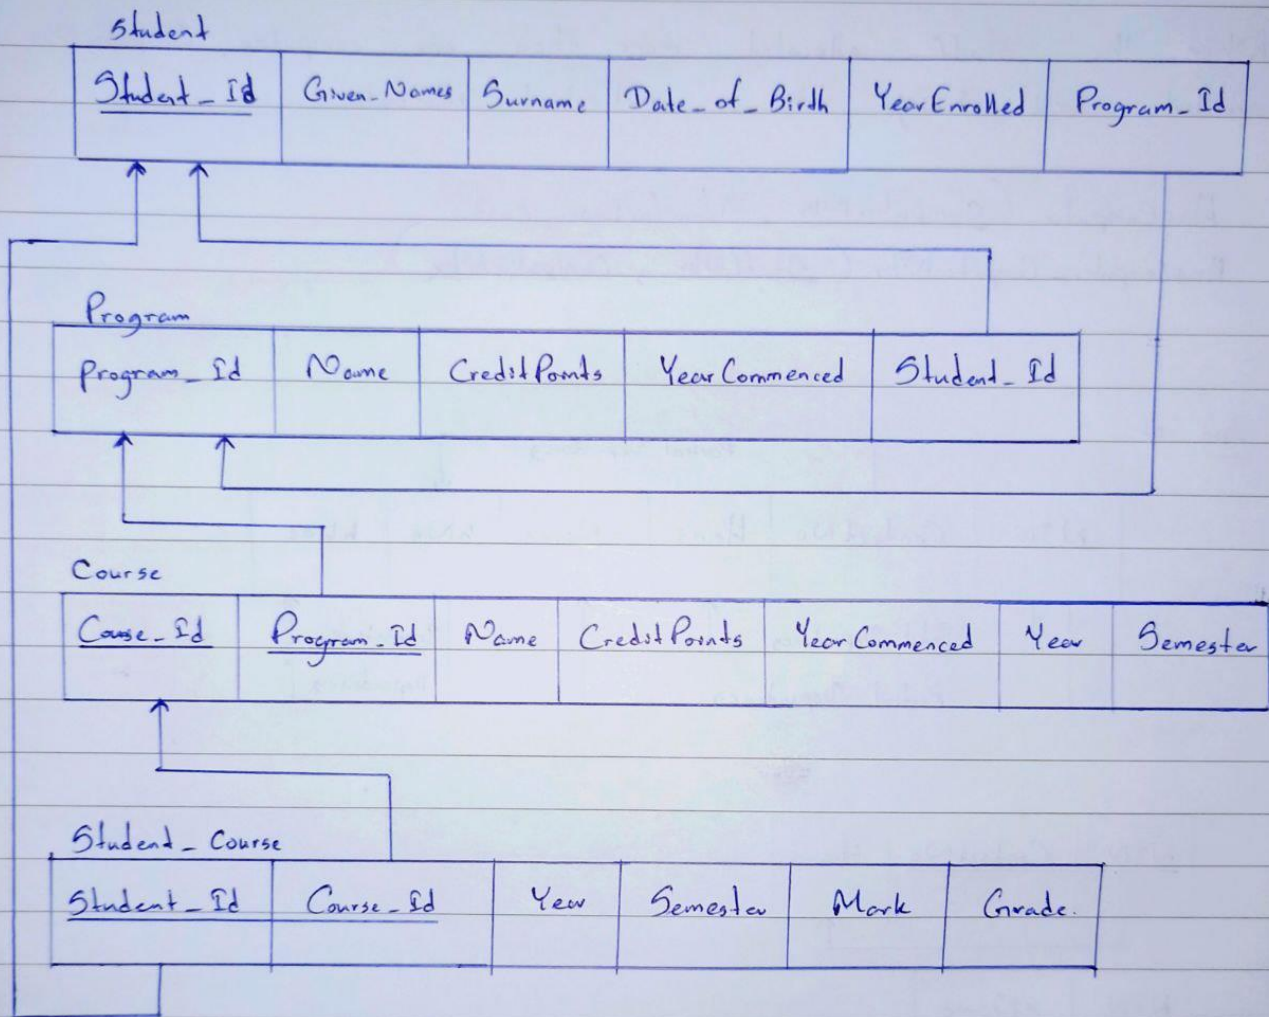 Student
Student_Id Given_Names Surname Date_of_Birth YearEnrolled Program_Id
Program
Program_Id Name CreditPoints YearCommenced Student_Id
Course
Course_Id Program_Id Name CreditPoints YearCommenced Year Semester
Student_Course
Student_Id Course_Id Year Semester Mark Grade.